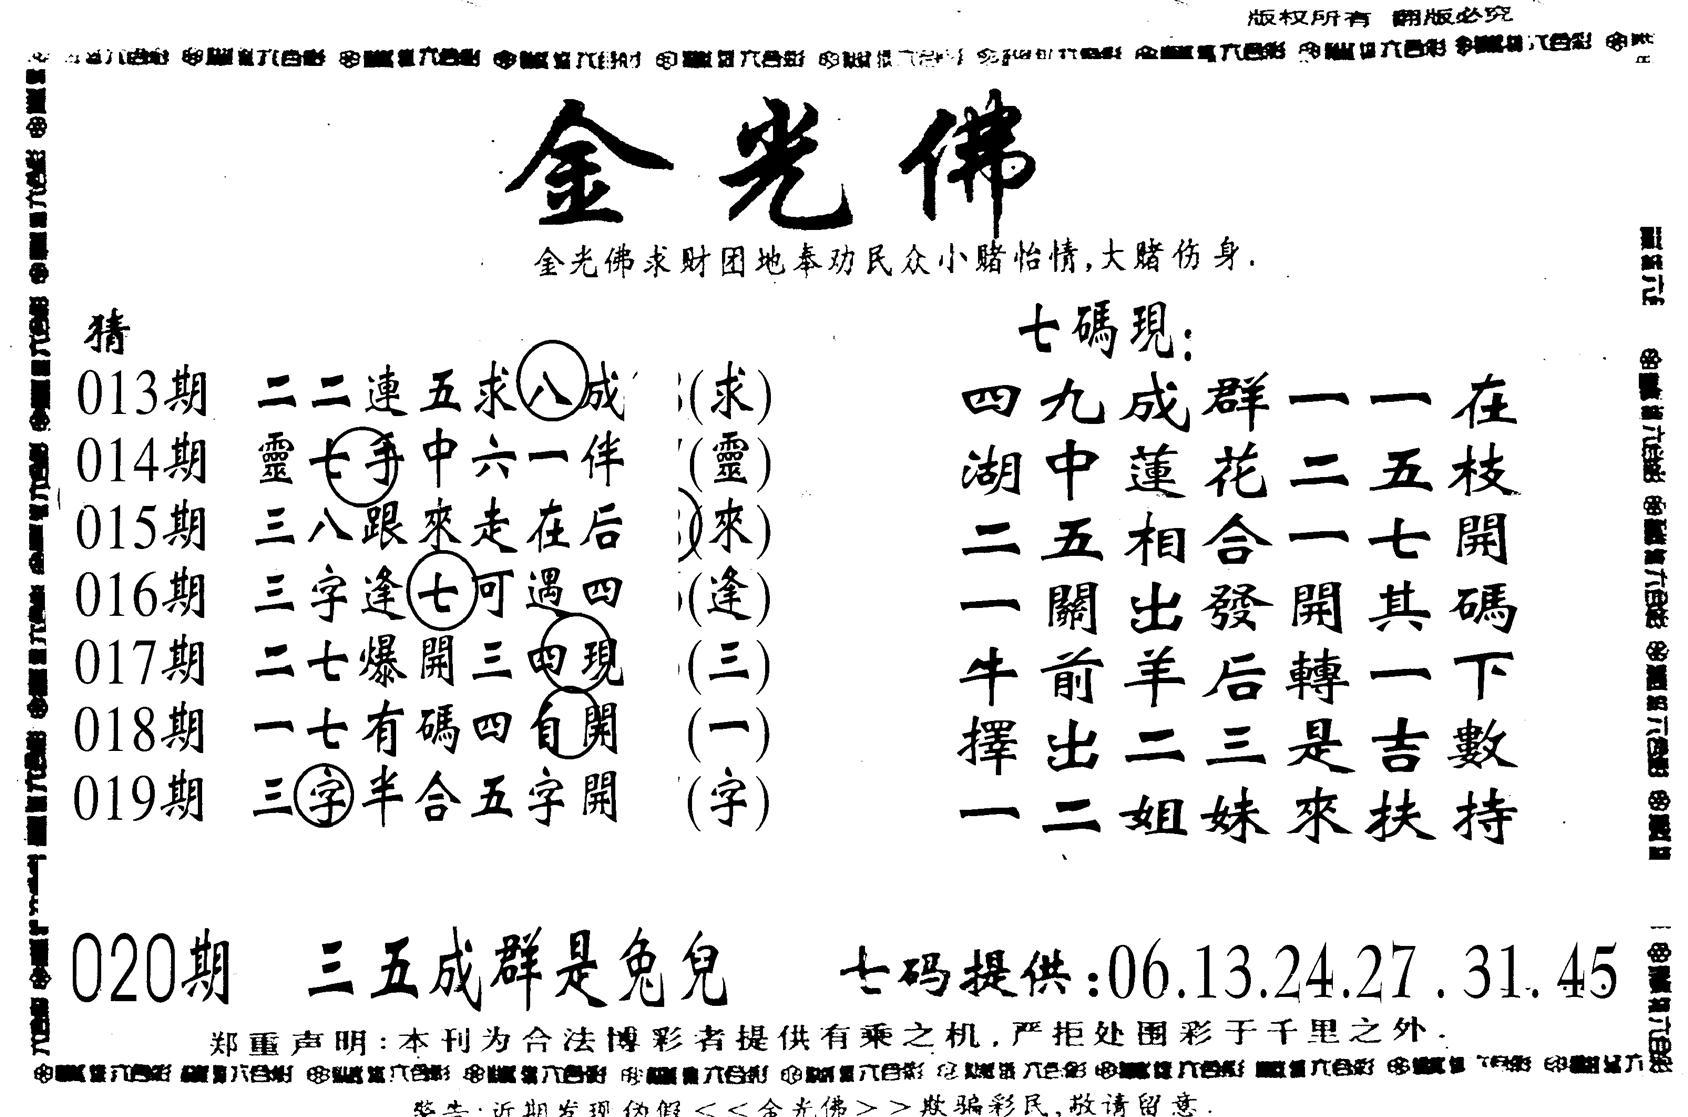 版权所有 翻版必究
金光佛
金光佛求财团地奉劝民众小赌怡情,大赌伤身.
猜
七碼現:
013期 二二連五求八成 (求) 四九成群一一在
014期 靈七手中六一伴 (靈) 湖中蓮花二五枝
015期 三八跟來走在后 (來) 二五相合一七開
016期 三字逢七可遇四 (逢) 一關出發開其碼
017期 二七爆開三四現 (三) 牛前羊后轉一下
018期 一七有碼四自開 (一) 擇出二三是吉數
019期 三字半合五字開 (字) 一二姐妹來扶持
020期 三五成群是兔兒 七码提供:06.13.24.27.31.45
郑重声明:本刊为合法博彩者提供有乘之机,严拒处围彩于千里之外.
警告:近期发现伪假<<金光佛>>欺骗彩民,敬请留意.